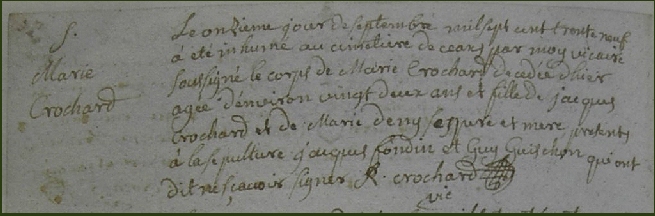 S.
Marie
Crochard
Le onzieme jour de septembre mil sept cent trente neuf
à été inhumé au cimetiere de ceans par moy vicaire
soussigné le corps de Marie Crochard decedée d'hier
agée d'environ vingt deux ans et fille de jacques
Crochard et de Marie deny ses pere et mere presents
à la sepulture jacques fondin et Guy Guischon qui ont
dit ne sçavoir signer R. Crochard
vic